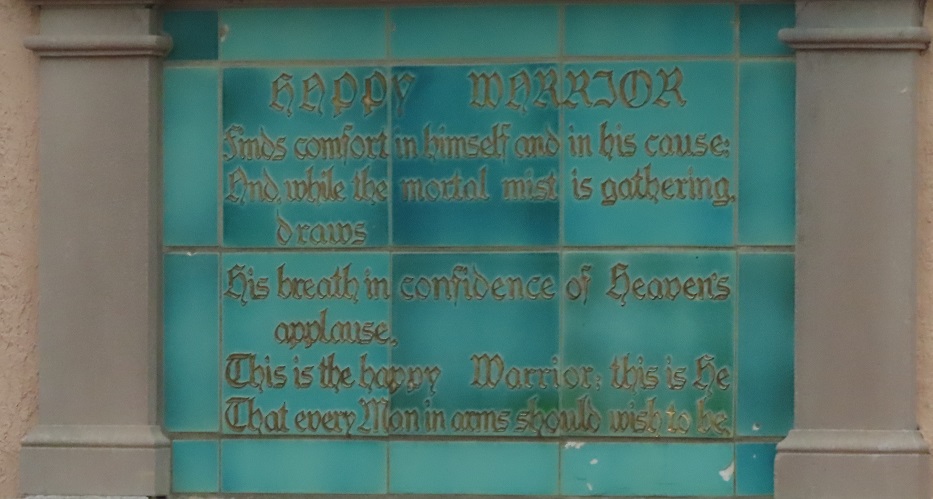 HAPPY WARRIOR
Finds comfort in himself and in his cause:
And, while the mortal mist is gathering,
draws
His breath in confidence of Heaven's
applause.
This is the happy Warrior; this is He
That every Man in arms should wish to be